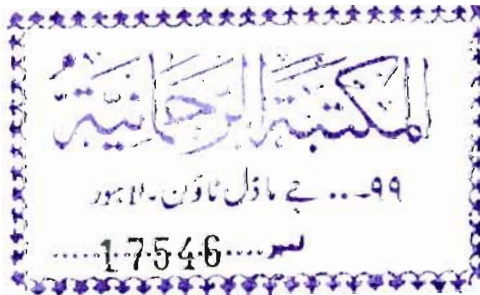 المكتبة الرحمانية
۹۹... جے ماڈل ٹاؤن۔ لاہور
نمبر ....17546....